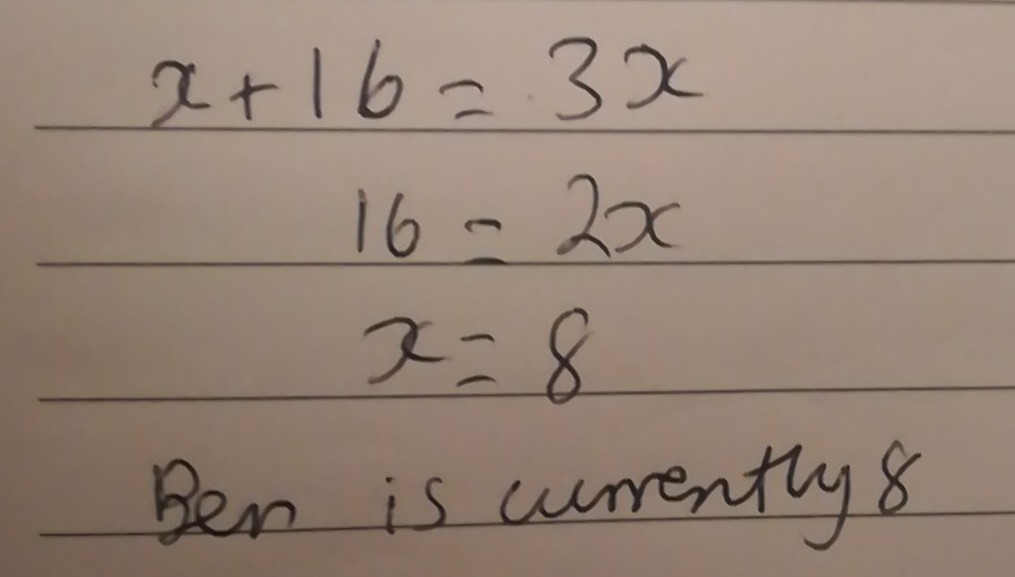 x+16=3x
16=2x
x=8
Ben is currently 8